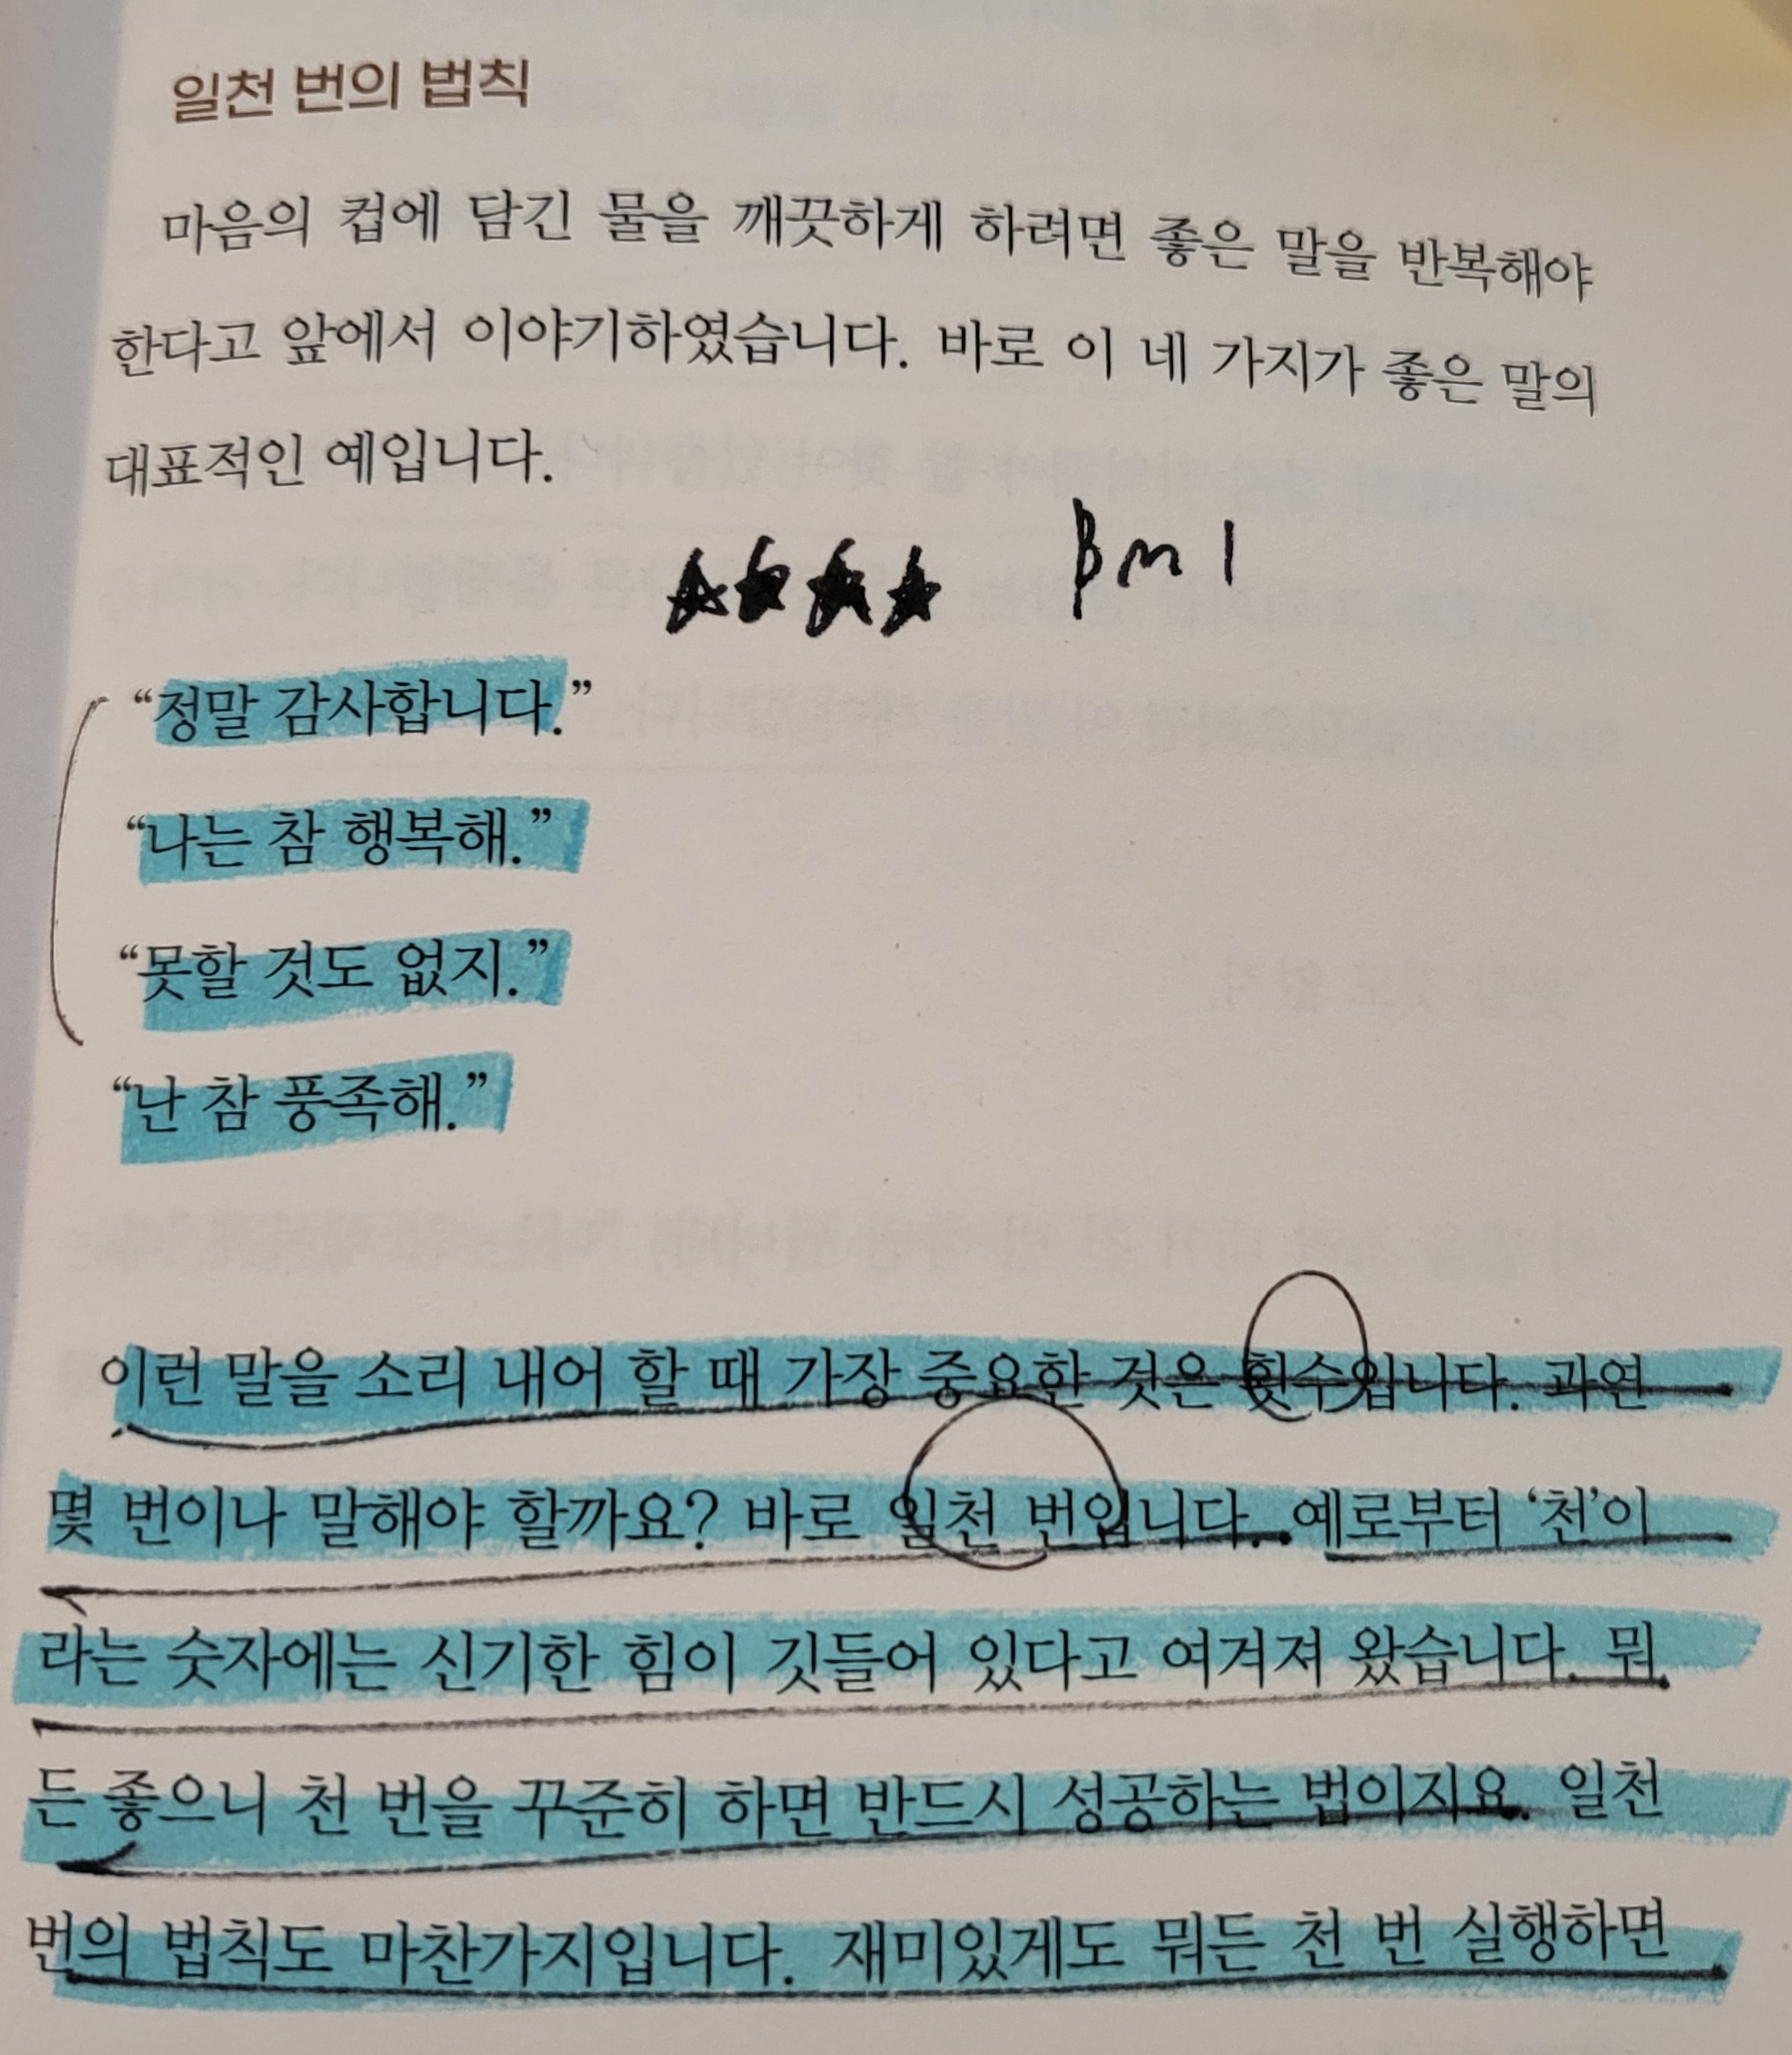 일천 번의 법칙
마음의 컵에 담긴 물을 깨끗하게 하려면 좋은 말을 반복해야
한다고 앞에서 이야기하였습니다. 바로 이 네 가지가 좋은 말의
대표적인 예입니다.
★★★★ BM1
“정말 감사합니다.”
“나는 참 행복해.”
“못할 것도 없지.”
“난 참 풍족해.”
이런 말을 소리 내어 할 때 가장 중요한 것은 횟수입니다. 과연
몇 번이나 말해야 할까요? 바로 일천 번입니다. 예로부터 ‘천’이
라는 숫자에는 신기한 힘이 깃들어 있다고 여겨져 왔습니다. 뭐
든 좋으니 천 번을 꾸준히 하면 반드시 성공하는 법이지요. 일천
번의 법칙도 마찬가지입니다. 재미있게도 뭐든 천 번 실행하면